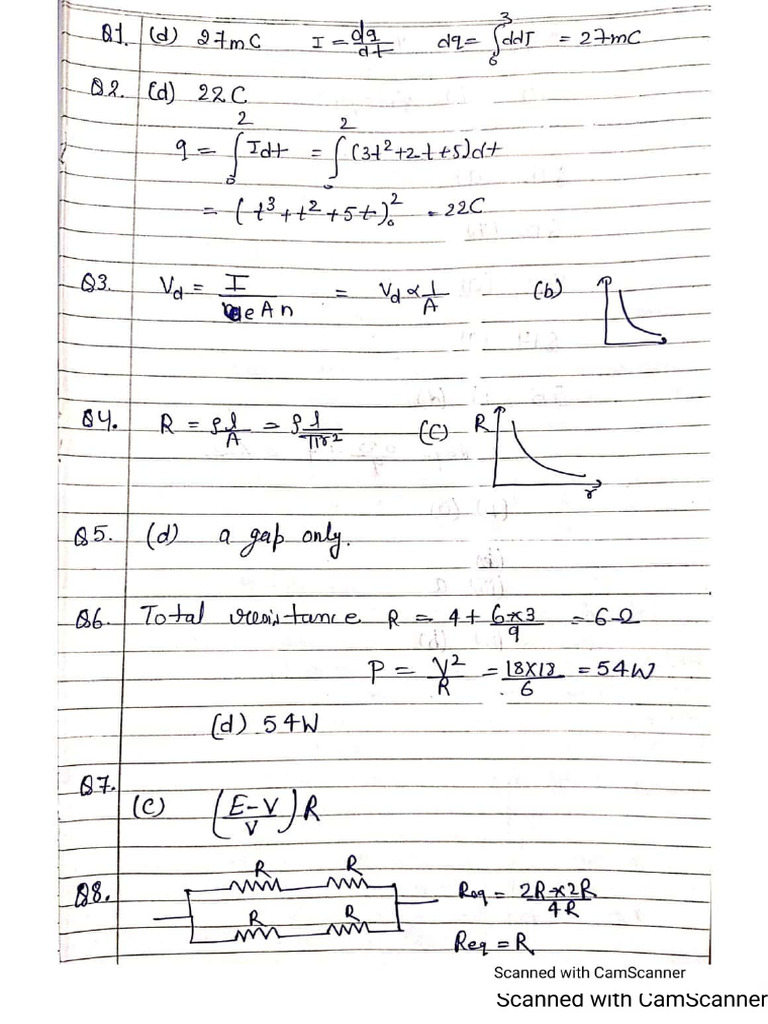 Q1. (d) 27mC I = dq/dt dq = ∫₀³ ddI = 27mC
Q2. (d) 22C
q = ∫₀² Idt = ∫₀² (3t²+2t+5)dt
= (t³+t²+5t)₀² = 22C
Q3. Vd = I/eAn = Vd ∝ 1/A (b)
Q4. R = ρl/A = ρl/πr² (C) R
r
Q5. (d) a gap only.
Q6. Total resistance R = 4 + 6×3/9 = 6Ω
P = V²/R = 18×18/6 = 54W
(d) 54W
Q7.
(C) (E-V/V)R
R R
Q8. Req = 2R×2R/4R
R R
Req = R
Scanned with CamScanner
Scanned with CamScanner